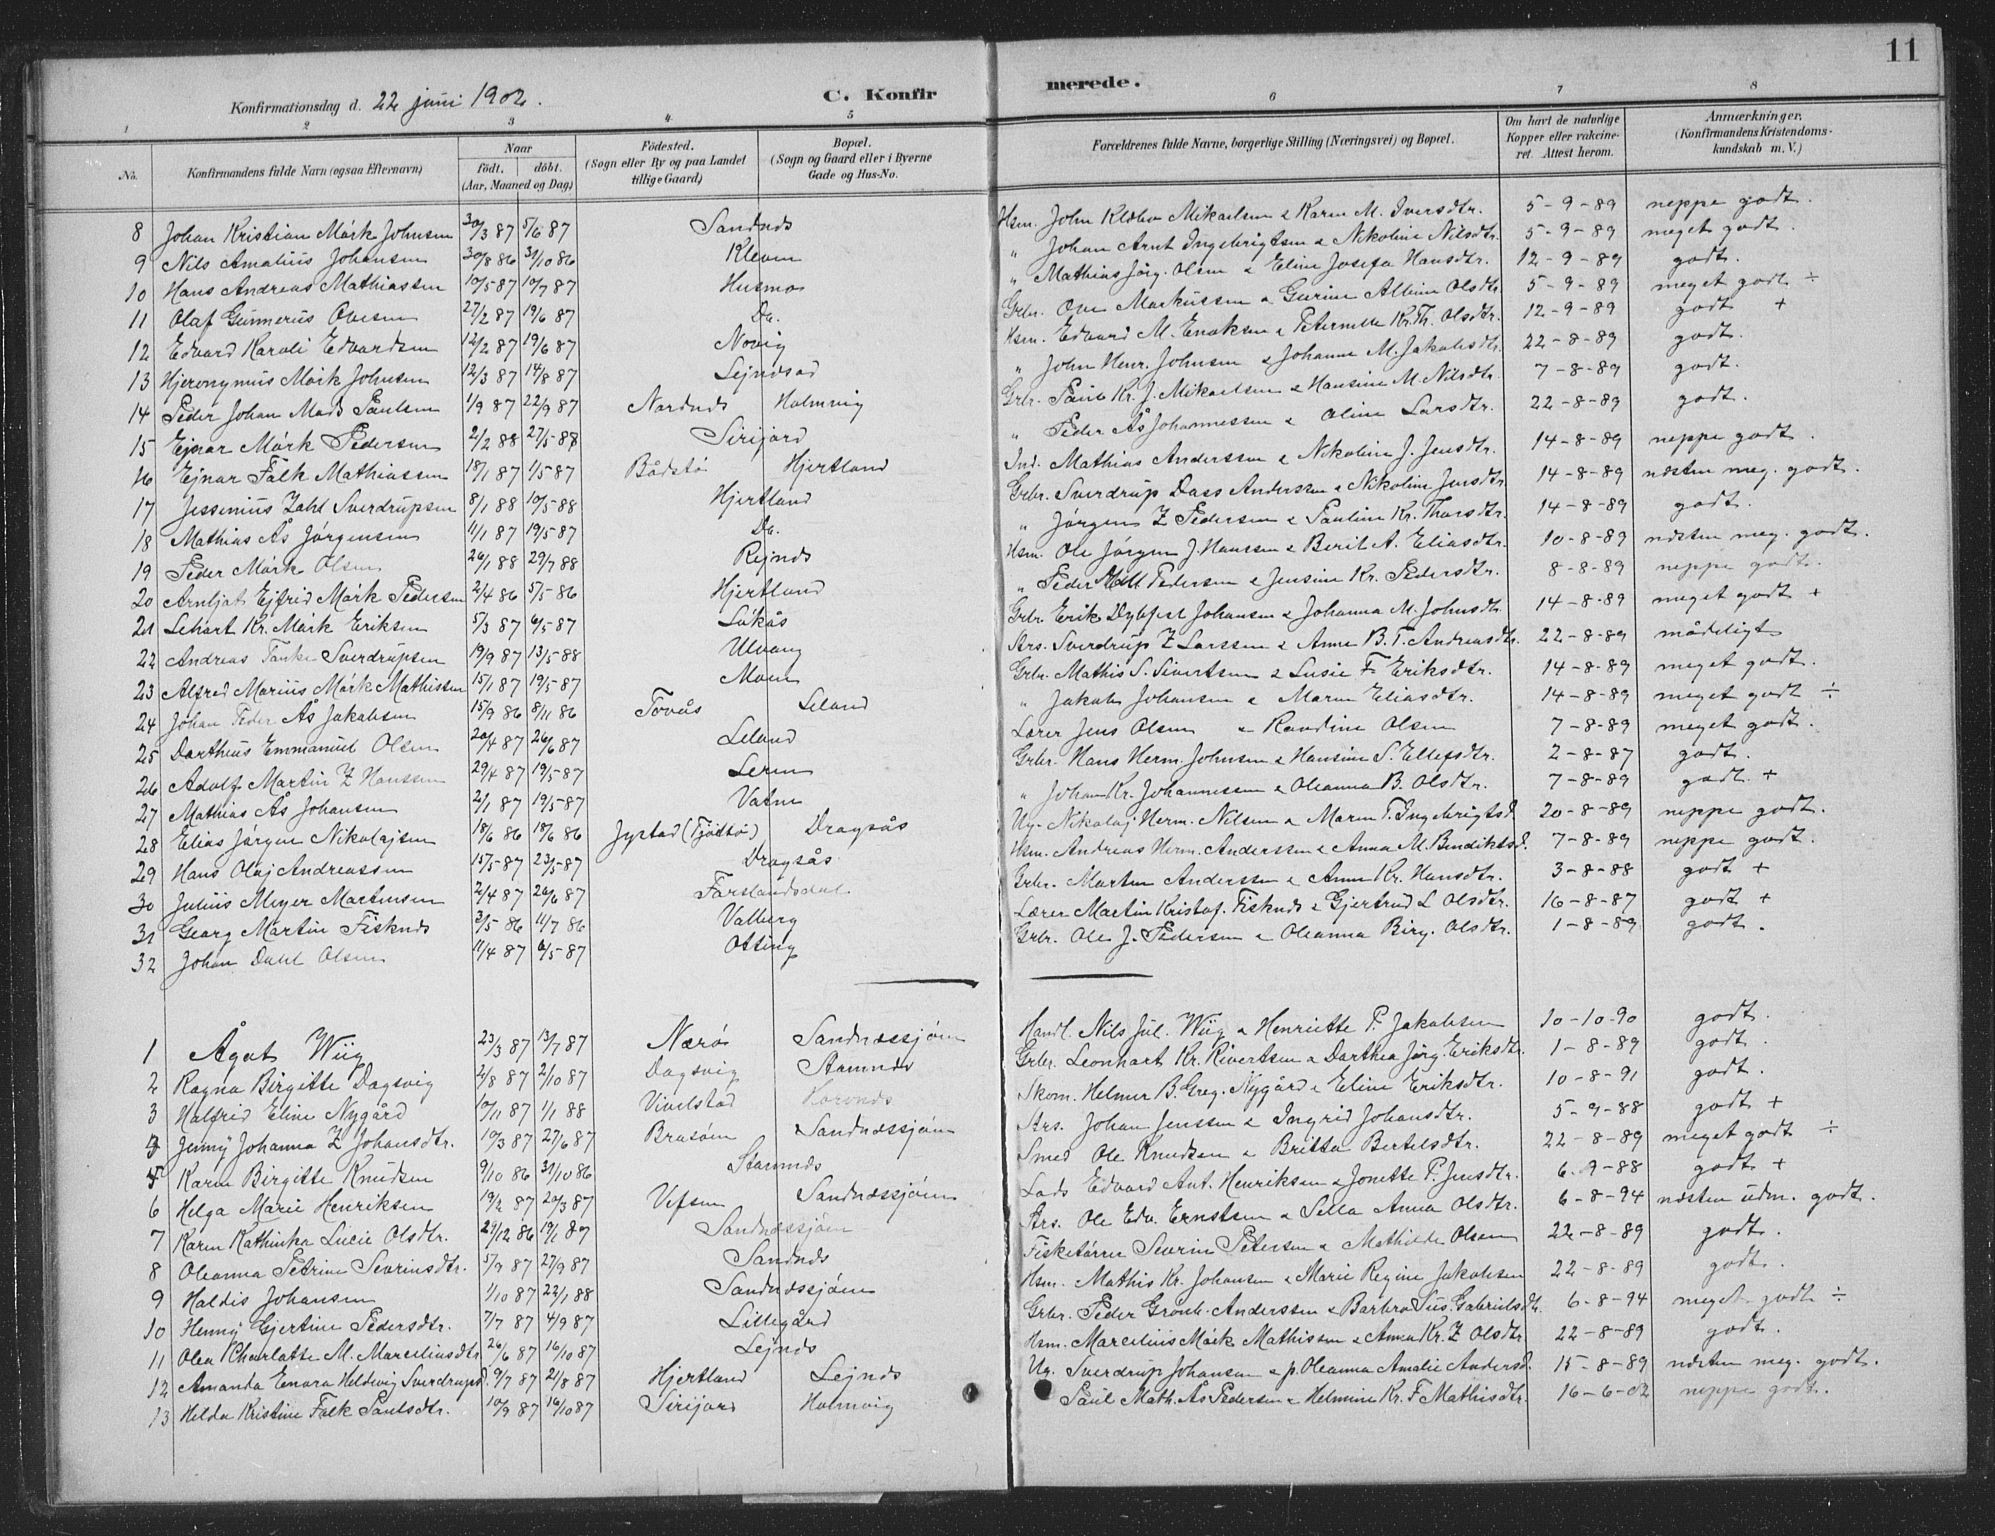 11
Konfirmationsdag d. 22 juni 1902. C. Konfir merede.
1 2 3 4 5 6 7 8
No. Konfirmandens fulde Navn (ogsaa Efternavn) Naar födt. döbt. (Aar, Maaned og Dag) Födested. (Sogn eller By og paa Landet tillige Gaard) Bopæl. (Sogn og Gaard eller i Byerne Gade og Hus-No. Forældrenes fulde Navne, borgerlige Stilling (Næringsvei) og Bopæl. Om havt de naturlige Kopper eller vaccineret. Attest herom. Anmærkninger. (Konfirmandens Kristendomskundskab m. V.)
8 Johan Kristian Mörk Johnsen 30/3 87 5/6 87 Sandnes Hsm. John Klæbo Mikaelsen & Karen M. Iversdtr. 5-9-89 neppe godt.
9 Nils Amalius Johansen 30/8 86 31/10 86 Kleven " Johan Arnt Ingebrigtsen & Nikoline Nilsdtr. 5-9-89 meget godt.
10 Hans Andreas Mathiassen 10/5 87 10/7 87 Husmo " Mathias Jörg. Olsen & Eline Josefa Hansdtr. 12-9-89 godt.
11 Olaf Gunnerus Ovesen 27/2 87 19/6 87 Do. Grbr. Ove Markussen & Gurine Albine Olsdtr. 5-9-89 meget godt ÷
12 Edvard Karoli Edvardsen 12/2 87 19/6 87 Novig Hsm. Edvard M. Enoksen & Peternelle Kr. Th. Olsdtr. 12-9-89 godt +
13 Hjeronymus Mörk Johnsen 12/3 87 14/8 87 Lejndsad " John Henr. Johnsen & Johanna M. Jakobsdtr. 22-8-89 godt.
14 Peder Johan Mads Paulsen 1/9 87 22/9 87 Nordnes Holmvig Grbr. Paul Kr. J. Mikaelsen & Hansine M. Nilsdtr. 7-8-89 godt.
15 Ejnar Mörk Pedersen 2/2 88 27/5 88 Sirijord " Peder Ås Johannessen & Oline Larsdtr. 22-8-89 godt.
16 Ejnar Falk Mathiassen 18/1 87 1/5 87 Bådstö Hjertland Ind. Mathias Anderssen & Nikoline J. Jensdtr. 14-8-89 neppe godt.
17 Jessenius Zahl Sverdrupsen 8/1 88 10/5 88 Hjertland Grbr. Sverdrup Dass Anderssen & Nikoline Jensdtr 14-8-89 næsten meg. godt.
18 Mathias Ås Jørgensen 11/1 87 19/5 87 Do. " Jørgen Z Pedersen & Pauline Kr. Thorsdtr. 14-8-89 godt.
19 Peder Mörk Olsen 26/1 88 29/7 88 Rejnes Hsm. Ole Jørgen J. Hanssen & Berit A. Eliasdtr. 10-8-89 næsten meg. godt.
20 Arnljot Ejfrid Mörk Pedersen 2/4 86 5/5 86 Hjertland " Peder Pedersen & Jensine Kr. Pedersdtr. 8-8-89 neppe godt.
21 Lehart Kr. Mörk Eriksen 5/3 87 6/5 87 Lökås Grbr. Erik Dybfest Johansen & Johanna M. Johnsdtr. 14-8-89 meget godt +
22 Andreas Tanke Sverdrupsen 19/9 87 13/5 88 Ulvang Ars. Sverdrup Z Larssen & Anne B. T. Andreasdtr. 22-8-89 mådeligt
23 Alfred Marius Mörk Mathissen 15/1 87 19/5 87 Moen Grbr. Mathis S. Sivertsen & Lusie F Eriksdtr. 14-8-89 meget godt.
24 Johan Peder Ås Jakobsen 15/9 86 8/11 86 Tovås Leland " Jakob Johansen & Maren Eliasdtr. 14-8-89 meget godt ÷
25 Dortheus Emmanuel Olsen 20/4 87 26/6 87 Leland Lærer Jens Olsen & Randine Olsen 7-8-89 meget godt.
26 Adolf Martin Z Hanssen 29/4 87 19/5 87 Leren Grbr. Hans Herm. Johnsen & Hansine S. Ellefsdtr. 2-8-87 godt.
27 Mathias Ås Johansen 2/1 87 19/5 87 Vatne " Johan Kr. Johannessen & Oleanna B. Olsdtr. 7-8-89 godt +
28 Elias Jørgen Nikolajsen 18/6 86 18/6 86 Jystad (Tjödtö) Dragsås Ug. Nikolaj Herm. Nilsen & Maren T. Ingebrigtsd. 20-8-89 neppe godt.
29 Hans Olaj Andreassen 15/5 87 23/5 87 Dragsås Hsm. Andreas Herm. Anderssen & Anna M. Bendiktsd. 7-8-89 neppe godt.
30 Julius Meyer Martinsen 2/4 87 26/6 87 Forslandsdal Grbr. Morten Anderssen & Anne Kr. Hansdtr. 3-8-88 godt +
31 Georg Martin Fisknes 3/5 86 4/7 86 Valberg Lærer Martin Kristof. Fisknes & Gjertrud L Olsdtr. 16-8-87 godt +
32 Johan Dahl Olsen 11/4 87 6/5 87 Otting Grbr. Ole J. Pedersen & Oleanna Birg. Olsdtr. 1-8-89 godt.
1 Ågot Wiig 23/3 87 13/7 87 Nærö Sandnæssjøen Handl. Nils Jul. Wiig & Henriette P. Jakobsen 10-10-90 godt.
2 Ragna Birgitte Dagsvig 2/8 87 2/10 87 Dagsvig Stamnes Grbr. Leonhart Kr. Sivertsen & Dorthea Jörg. Eriksdtr. 1-8-89 godt.
3 Halfrid Eline Nygård 10/11 87 1/1 88 Vivelstad Skom. Helmer B. Greg. Nygård & Eline Eriksdtr. 10-8-91 godt.
4 Jenny Johanna Z Johansdtr. 10/3 87 27/6 87 Brasöen Sandnæssjøen Ars. Johan Jenssen & Ingrid Johansdtr. 5-9-88 godt +
5 Karen Birgitte Knudsen 9/10 86 31/10 86 Stamnes Smed Ole Knudsen & Britta Bertelsdtr. 22-8-89 meget godt ÷
6 Helga Marie Henriksen 19/2 87 20/3 87 Vefsen Sandnæssjøen Lods Edvard Ant. Henriksen & Jonette P. Jensdtr. 6-9-88 godt +
7 Karen Kathinka Lucie Olsdtr. 27/12 86 19/1 87 Sandnæssjøen Ars. Ole Edv. Ernstsen & Sella Anna Olsdtr. 6-8-94 næsten udm. godt.
8 Oleanna Petrine Severinsdtr. 5/9 87 27/9 87 Sandnes Fisketörrer Severin Petersen & Mathilde Olsen 22-8-89 godt.
9 Haldis Johansen 1/10 87 22/1 88 Sandnæssjøen Hsm. Mathis Kr. Johansen & Marie Regine Jakobsen 22-8-89 godt.
10 Henny Gjertine Pedersdtr. 7/7 87 4/9 87 Lillegård Grbr. Peder Grønb. Anderssen & Barbro Sus. Gabrielsdtr. 6-8-94 meget godt ÷
11 Olea Charlotte M. Marceliusdtr 26/6 87 16/10 87 Lejnes Hsm. Marcelius Mörk Mathissen & Anna Kr. Z Olsdtr 22-8-89 godt.
12 Amanda Enora Heldevig Sverdrupsd. 9/7 87 21/8 87 Hjertland Lejnes Ug. Sverdrup Johansen & p. Oleanna Amalie Andersd. 15-8-89 næsten meg. godt.
13 Hilda Kristine Falk Paulsdtr. 10/9 87 16/10 87 Sirijord Holmvig Paul Math. Ås Pedersen & Helmine Kr. F Mathisdtr. 16-6-02 neppe godt.